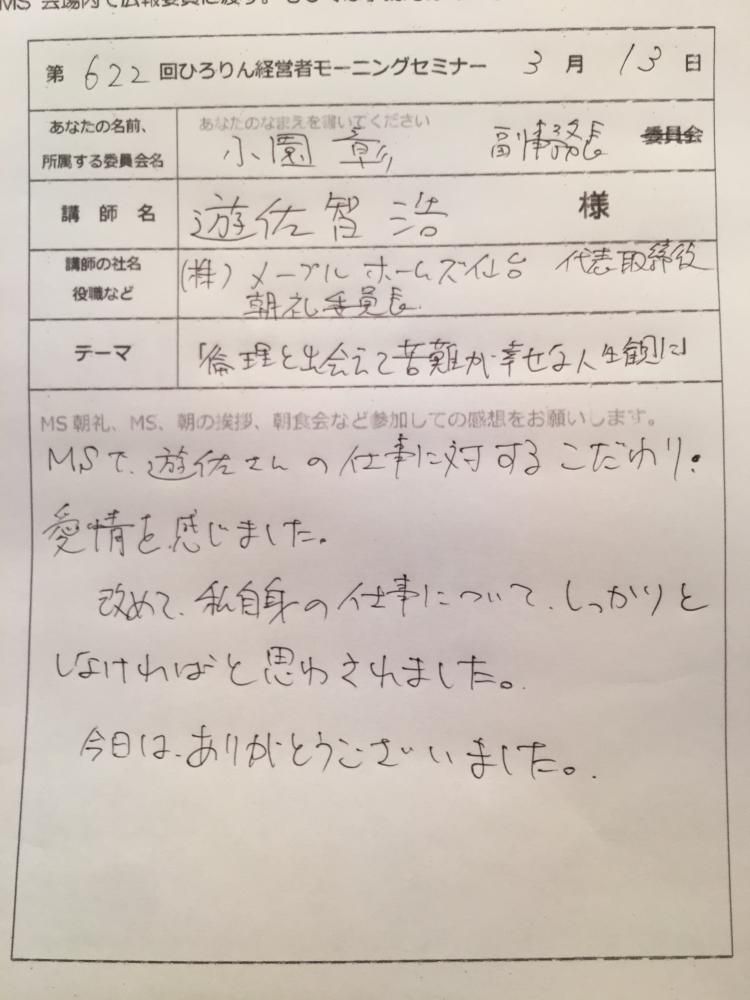 MS会場内で広報委員に渡す。
第 622 回ひろりん経営者モーニングセミナー 3 月 13 日
あなたの名前、
所属する委員会名
あなたのなまえを書いてください
小園 彰 副事務長 委員会
講 師 名 遊佐智浩 様
講師の社名
役職など
(株)メープルホームズ仙台 代表取締役
朝礼委員長
テーマ 「倫理と出会えて苦難が幸せな人生観に」
MS朝礼、MS、朝の挨拶、朝食会など参加しての感想をお願いします。
MSで、遊佐さんの仕事に対するこだわり・
愛情を感じました。
改めて、私自身の仕事について、しっかりと
しなければと思わされました。
今日は、ありがとうございました。